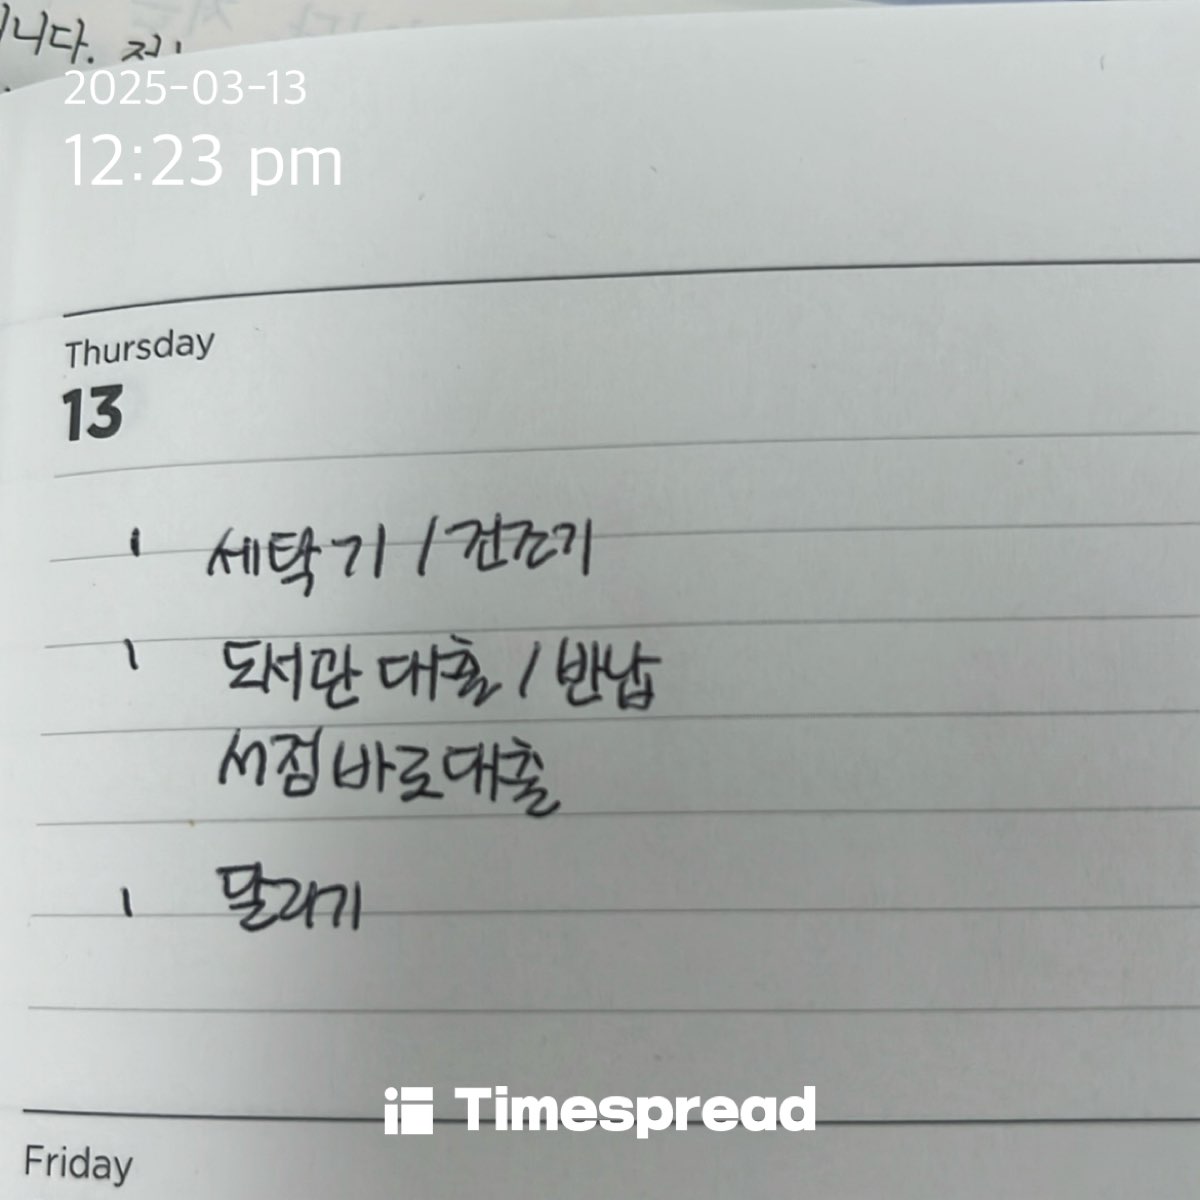 니다.
2025-03-13
12:23 pm
Thursday
13
세탁기 / 건조기
도서관 대출 / 반납
서점바로대출
달리기
Timespread
Friday